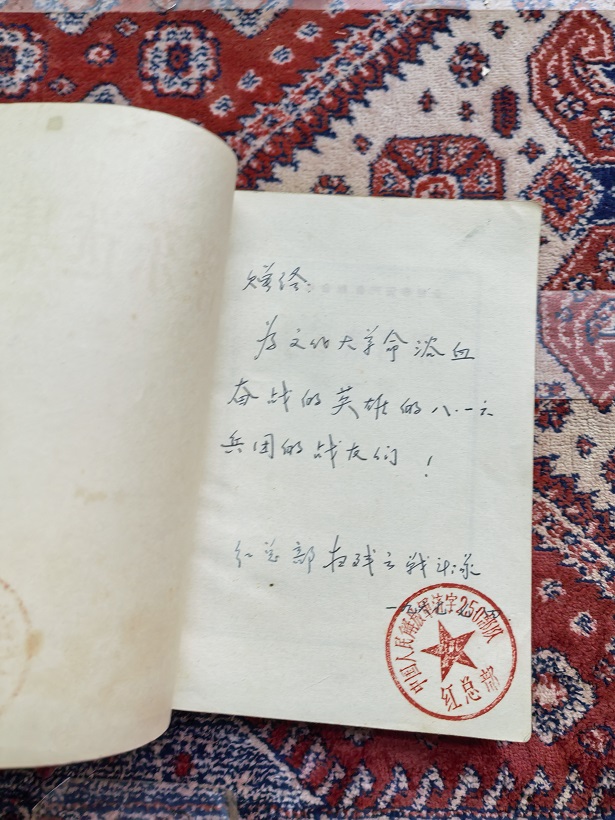 赠给:
为文化大革命浴血
奋战的英雄的八·一六
兵团的战友们!
红总部扫残云战斗队
中国人民解放军注字250部队
红总部